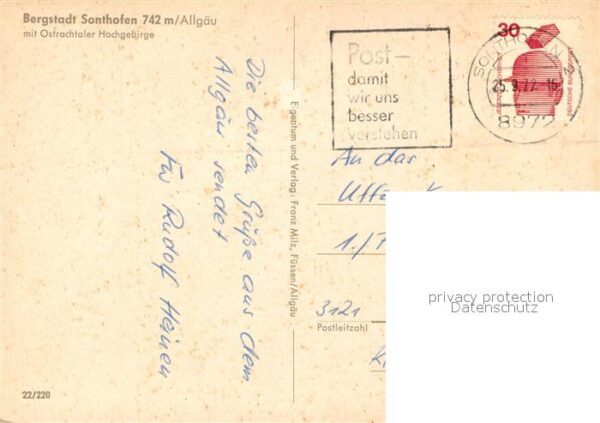 Bergstadt Sonthofen 742 m/Allgäu
mit Ostrachtaler Hochgebirge
Die besten Grüße aus dem
Allgäu sendet
Für Rudolf Heinen
Eigentum und Verlag: Franz Milz, Füssen/Allgäu
22/220
Post–
damit
wir uns
besser
verstehen
SONTHOFEN 2
25.9.72
8972
30
DEUTSCHE BUNDESPOST
An das
1./
3121
Postleitzahl
privacy protection
Datenschutz